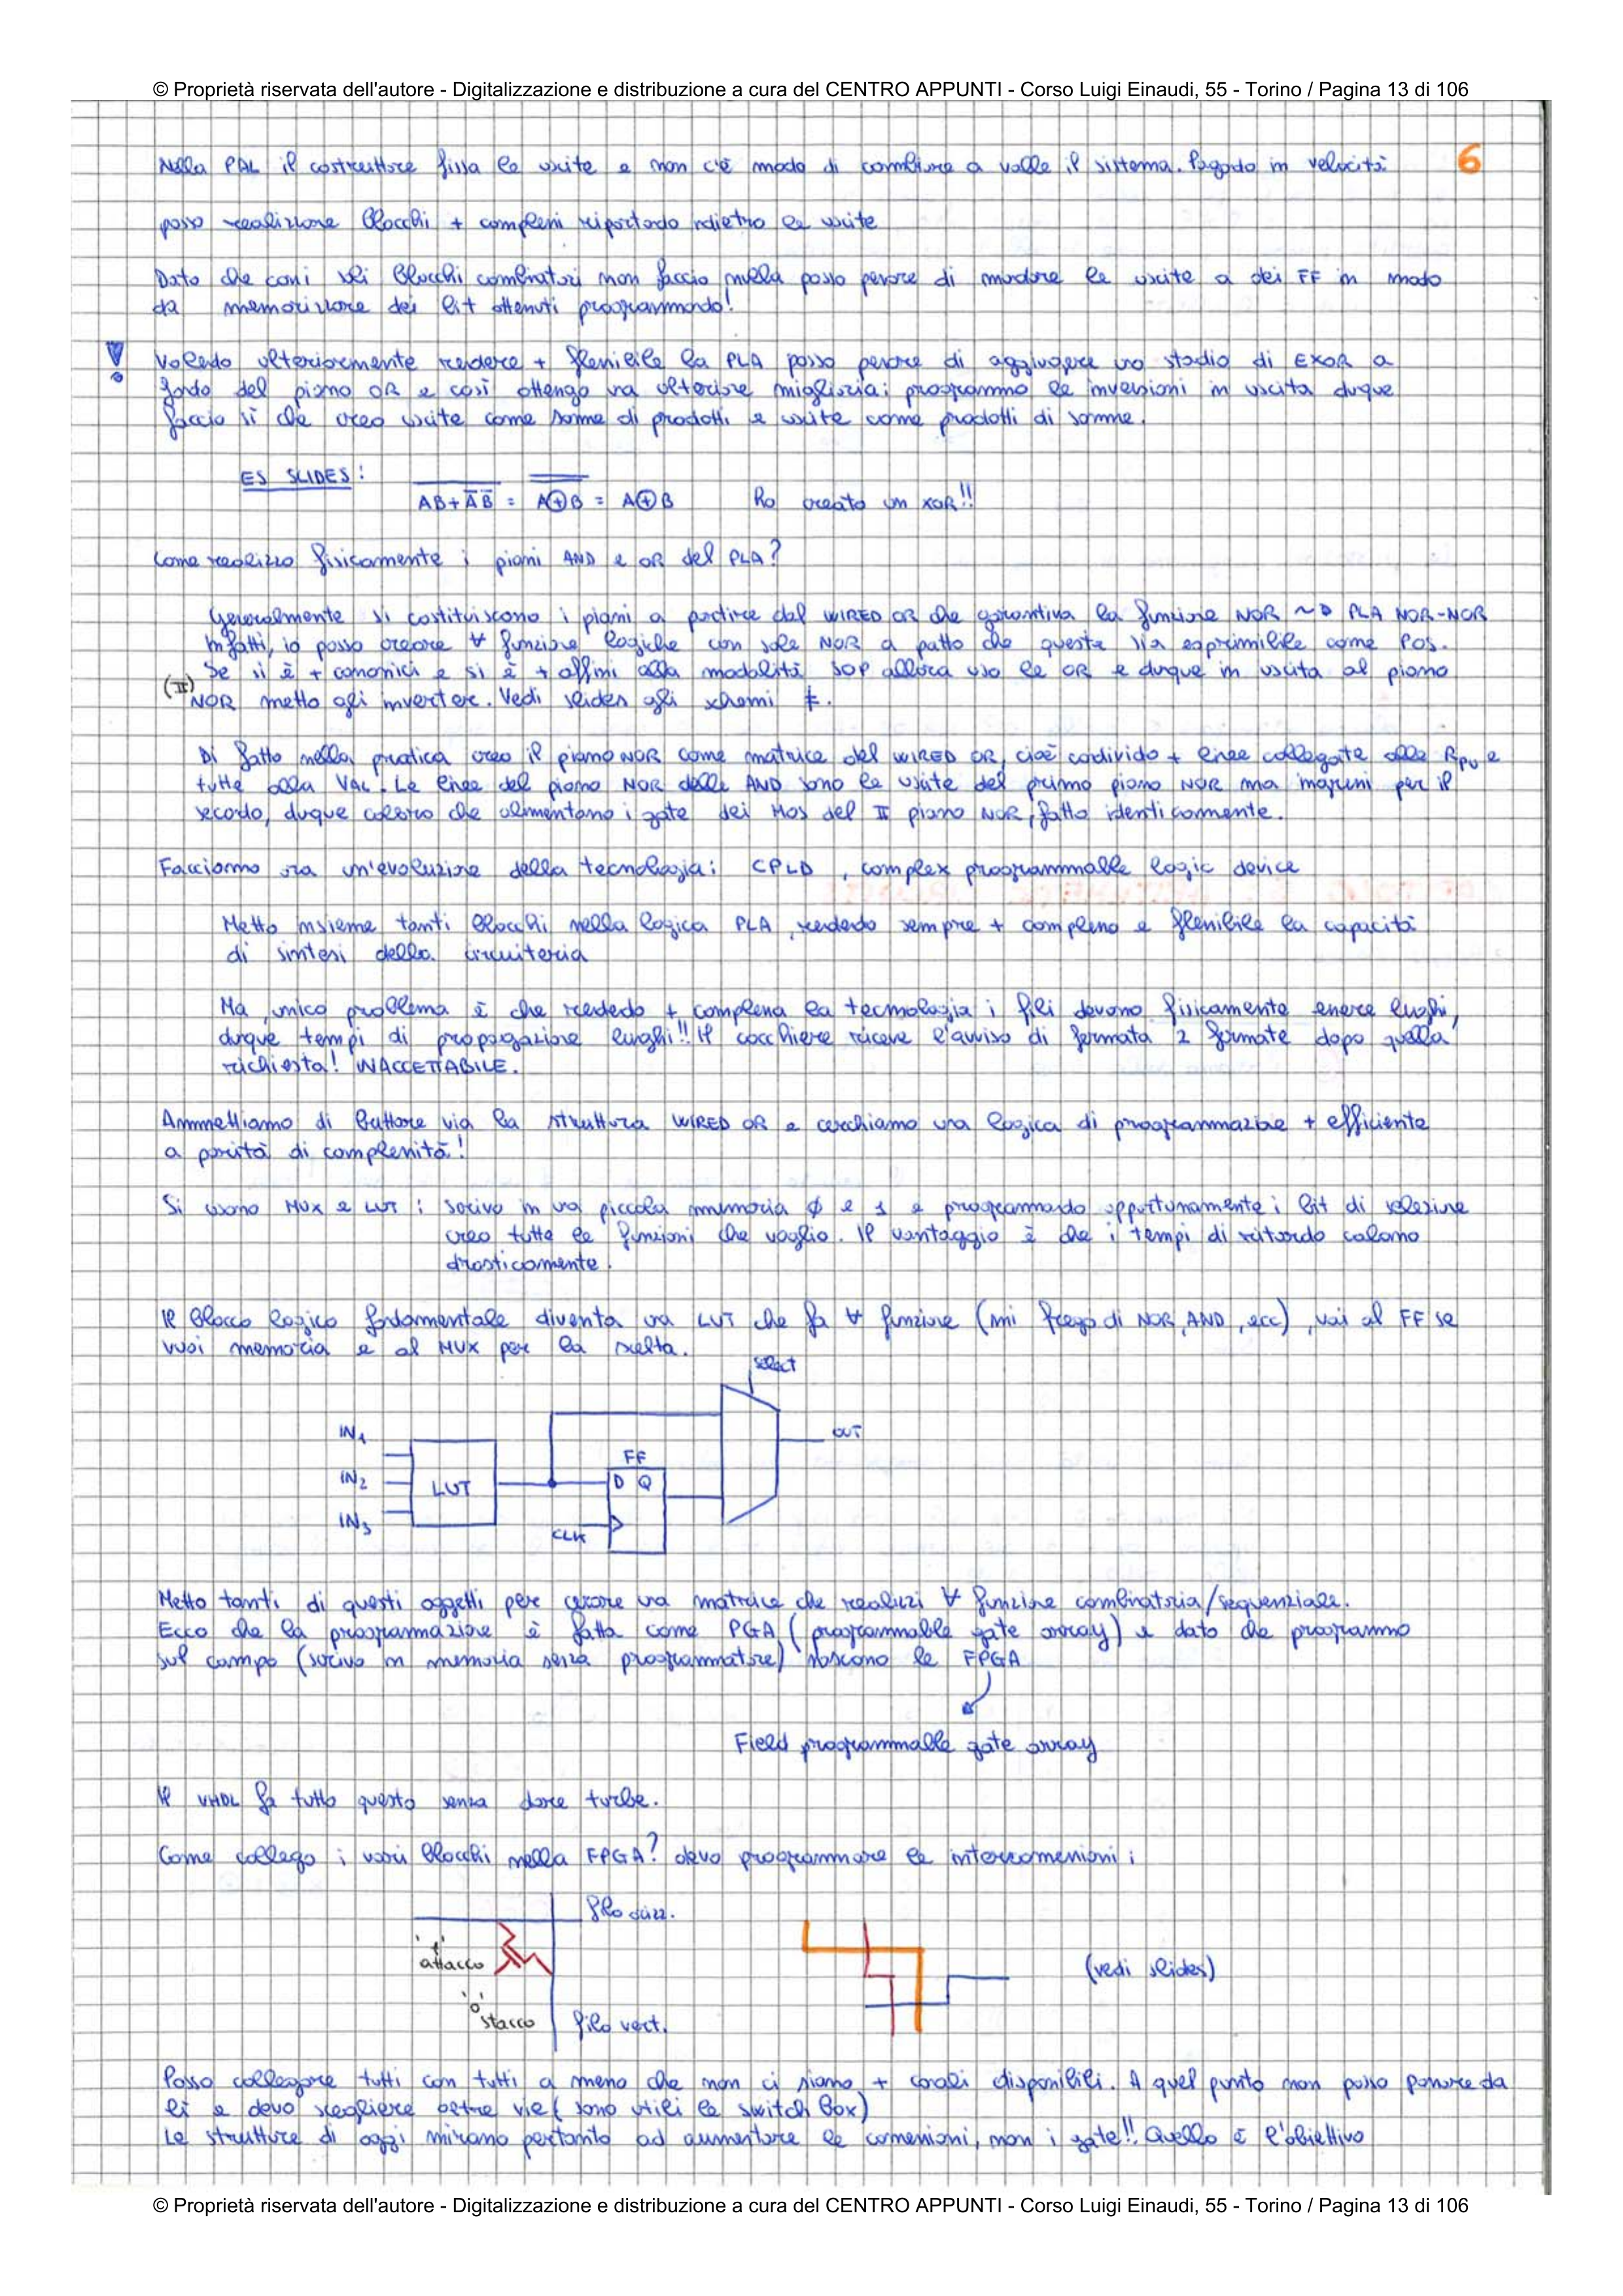 © Proprietà riservata dell'autore - Digitalizzazione e distribuzione a cura del CENTRO APPUNTI - Corso Luigi Einaudi, 55 - Torino / Pagina 13 di 106
6
Nella PAL il costruttore fissa le uscite e non c'è modo di cambiare a valle il sistema. Pagando in velocità
posso realizzare blocchi + complessi riportando indietro le uscite
Dato che coni dei blocchi combinatori non faccio nulla posso pensare di mandare le uscite a dei FF in modo
da memorizzare dei bit ottenuti programmando!
Volendo ulteriormente rendere + flessibile la PLA posso pensare di aggiungere uno stadio di EXOR a
fondo del piano OR e così ottengo una ulteriore miglioria: programmo le inversioni in uscita dunque
faccio sì che creo uscite come somme di prodotti e uscite come prodotti di somme.
ES SLIDES:
A̅B̅+̅A̅̅B̅̅ = A̅̅⊕̅̅B̅̅ = A⊕B Ho creato un XOR!!
Come realizzo fisicamente i piani AND e OR del PLA?
Generalmente si costituiscono i piani a partire dal WIRED OR che garantiva la funzione NOR ~D PLA NOR-NOR
Infatti, io posso creare ∀ funzione logiche con sole NOR a patto che questa sia esprimibile come POS.
Se si è + canonici e si è + affini alla modalità SOP allora uso le OR e dunque in uscita al piano
(II) NOR metto gli inverter. Vedi slides gli schemi ≠.
Di fatto nella pratica creo il piano NOR come matrice del WIRED OR, cioè condivido + linee collegate alle Rpu e
tutte alla VAL. Le linee del piano NOR delle AND sono le uscite del primo piano NOR ma ingressi per il
secondo, dunque coloro che alimentano i gate dei MOS del II piano NOR, fatto identicamente.
Facciamo ora un'evoluzione della tecnologia: CPLD, complex programmable logic device
Metto insieme tanti blocchi nella logica PLA, rendendo sempre + complesso e flessibile la capacità
di sintesi della circuiteria
Ma, unico problema è che rendendo + complessa la tecnologia i fili devono fisicamente essere lunghi,
dunque tempi di propagazione lunghi!! Il cocchiere riceve l'avviso di fermata 2 fermate dopo quella
richiesta! INACCETTABILE.
Ammettiamo di buttare via la struttura WIRED OR e cerchiamo una logica di programmazione + efficiente
a parità di complessità!
Si usano MUX e LUT: scrivo in una piccola memoria 0 e 1 e programmando opportunamente i bit di selezione
creo tutte le funzioni che voglio. Il vantaggio è che i tempi di ritardo calano
drasticamente.
Il blocco logico fondamentale diventa una LUT che fa ∀ funzione (mi frego di NOR, AND, ecc), vai al FF se
vuoi memoria e al MUX per la scelta.
select
IN1
IN2
IN3
LUT
FF
D Q
CLK
OUT
Metto tanti di questi oggetti per creare una matrice che realizzi ∀ funzione combinatoria/sequenziale.
Ecco che la programmazione è fatta come PGA (programmable gate array) e dato che programmo
sul campo (scrivo in memoria senza programmatore) nascono le FPGA
Field programmable gate array
Il VHDL fa tutto questo senza dare turbe.
Come collego i vari blocchi nella FPGA? devo programmare le interconnessioni:
filo orizz.
'1'
attacco
'0'
stacco
filo vert.
(vedi slides)
Posso collegare tutti con tutti a meno che non ci siano + canali disponibili. A quel punto non posso passare da
lì e devo scegliere altre vie (sono utili le switch box)
Le strutture di oggi mirano pertanto ad aumentare le connessioni, non i gate!! Quello è l'obiettivo
© Proprietà riservata dell'autore - Digitalizzazione e distribuzione a cura del CENTRO APPUNTI - Corso Luigi Einaudi, 55 - Torino / Pagina 13 di 106